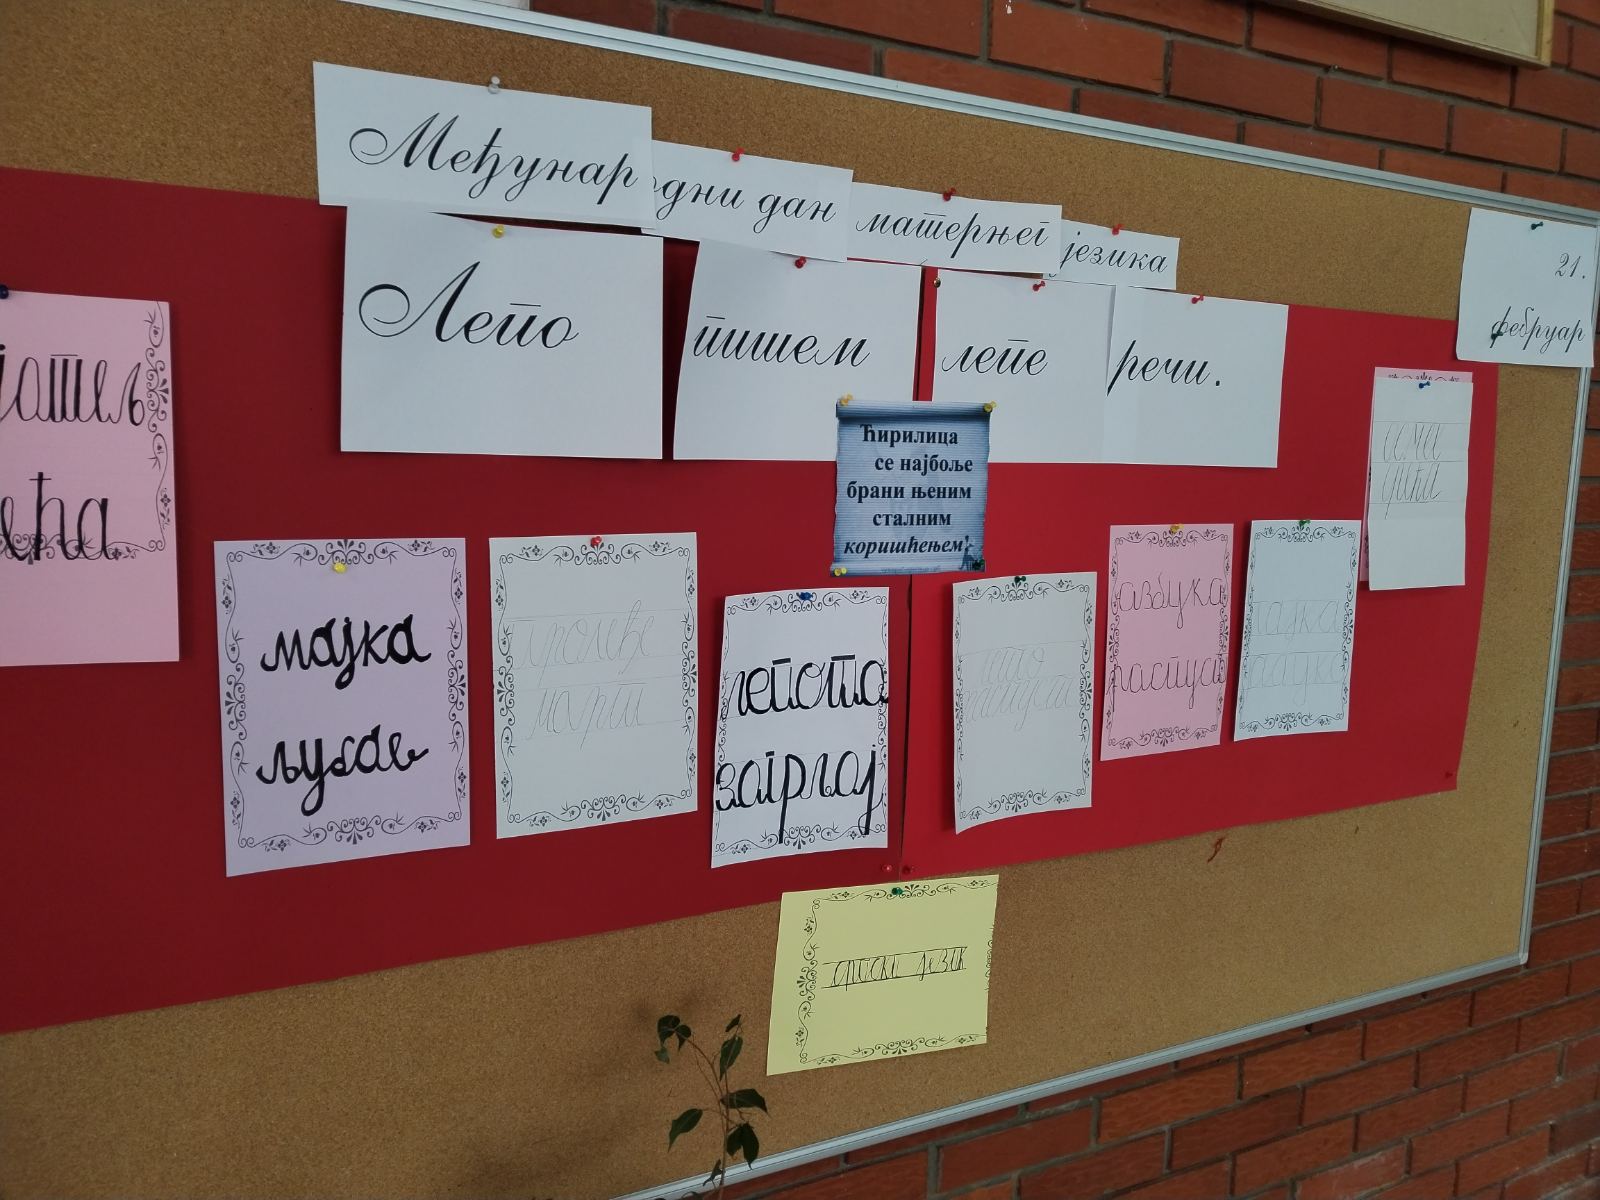 Међународни дан матерњег језика
21.
фебруар
Лепо пишем лепе речи.
Ћирилица
се најбоље
брани њеним
сталним
коришћењем!
мајка
љубав
пролеће
март
лепота
загрљај
лето
распуст
азбука
распуст
мајка
српски језик